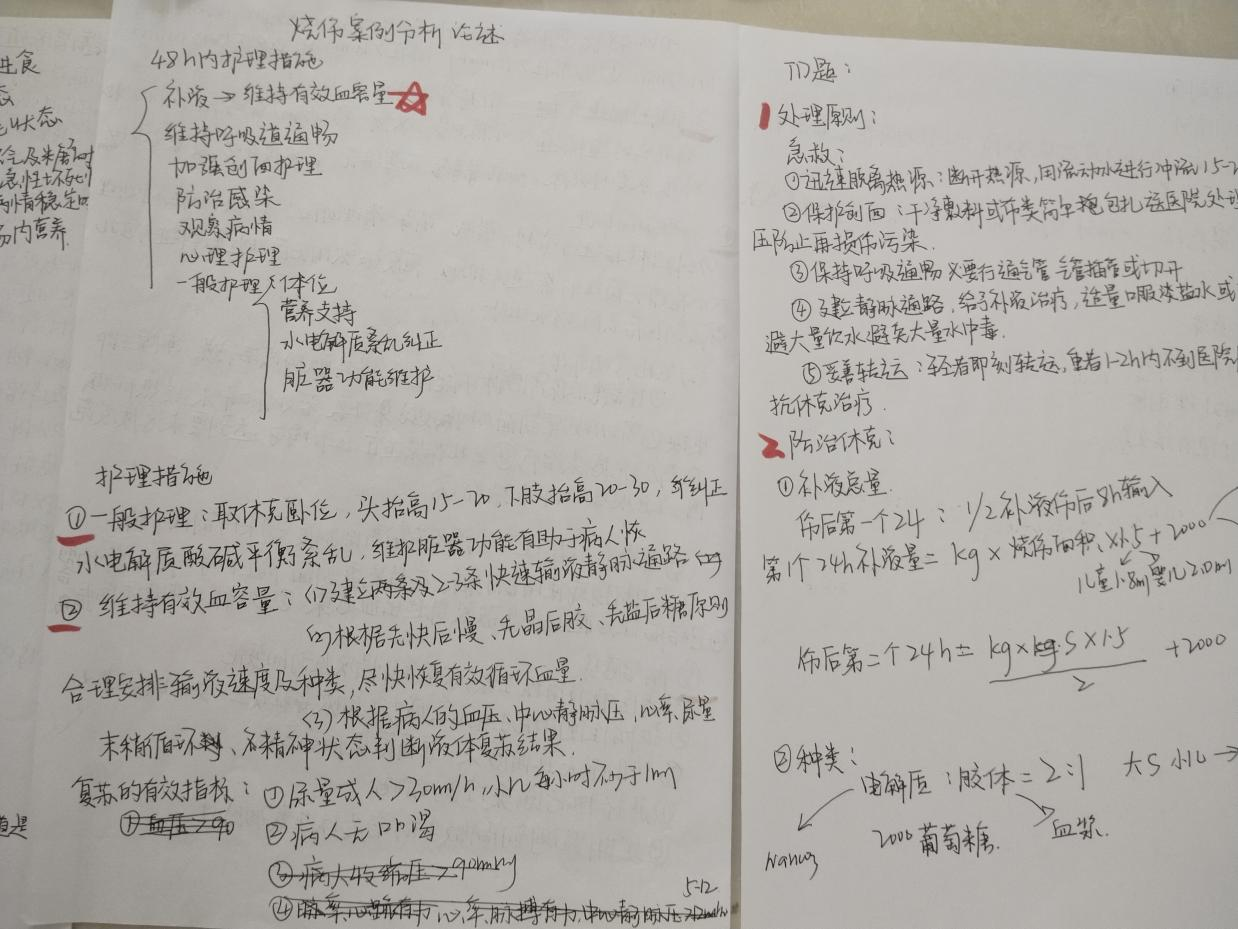 烧伤案例分析论述
48h内护理措施
补液→维持有效血容量☆
维持呼吸道通畅
加强创面护理
防治感染
观察病情
心理护理
一般护理 体位
营养支持
水电解质紊乱纠正
脏器功能维护
护理措施
①一般护理：取休克卧位，头抬高15-20，下肢抬高20-30，纠正
水电解质酸碱平衡紊乱，维护脏器功能有助于病人恢
② 维持有效血容量：(1)建立两条及2-3条快速输液静脉通路
(2)根据先快后慢、先晶后胶、先盐后糖原则
合理安排输液速度及种类，尽快恢复有效循环血量.
(3)根据病人的血压、中心静脉压，心率、尿量
末梢循环、精神状态判断液体复苏结果.
复苏的有效指标：①尿量成人>30ml/h，小儿每小时不少于1ml
①血压>90
②病人无口渴
③病人收缩压>90mmHg
5-12
④ 心率、脉搏有力，中心静脉压
生食
态
状态
病情稳定
肠内营养
TD题：
1 处理原则：
急救：
①迅速脱离热源：断开热源，用流动水进行冲洗15-2
②保护创面：干净敷料或布类简单包扎送医院处理
压防止再损伤污染.
③保持呼吸通畅 必要行通气管 气管插管或切开
④建立静脉通路，给予补液治疗，适量口服淡盐水或
避大量饮水避免大量水中毒.
⑤妥善转运：轻者即刻转运，重者1-2h内不到医院
抗休克治疗.
2 防治休克：
①补液总量.
伤后第一个24：1/2补液伤后8h输入
第1个24h补液量=kg×烧伤面积×1.5+2000
儿童1.8ml 婴儿2.0ml
伤后第二个24h= kg×S×1.5 +2000
2
②种类：
电解质：胶体=2:1 大S 小儿→
2000葡萄糖. 血浆.